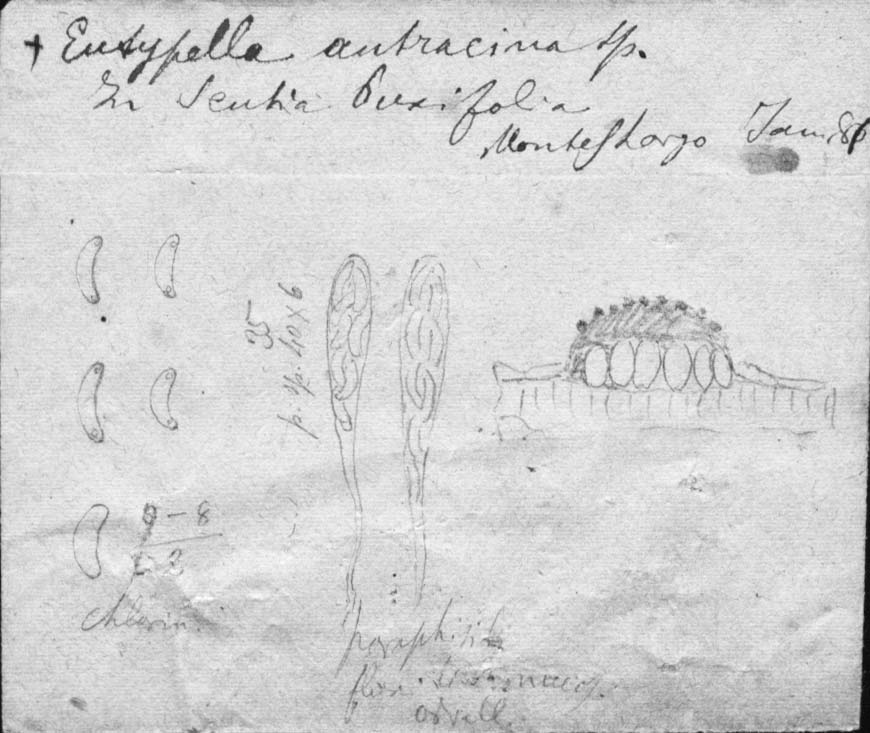 + Eutypella antracina sp.
In Scutia buxifolia
Montes Largo Jan. 86
35
p. sp. 40 x 6
9-8
2
chlorin.
paraphisib